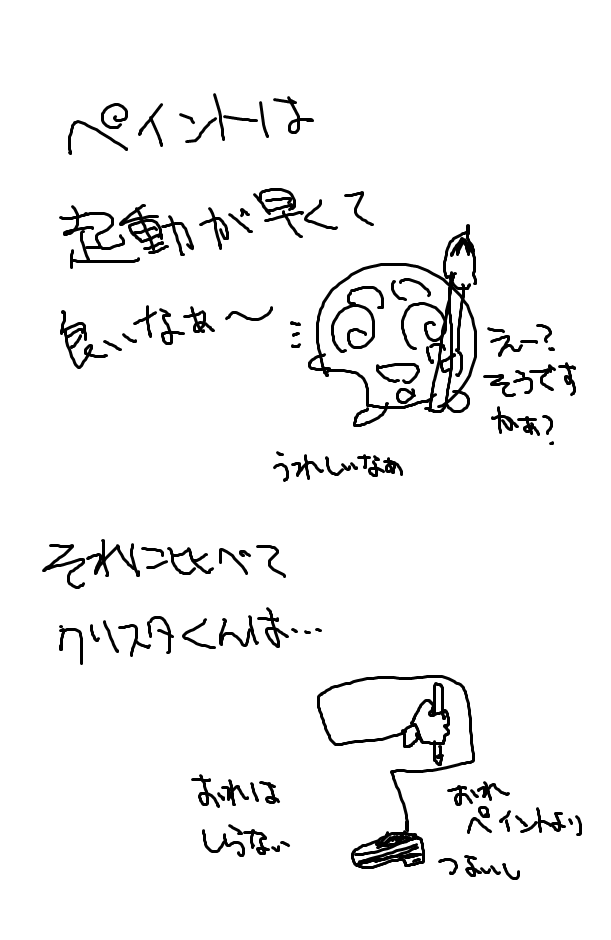 ペイントは
起動が早くて
良いなぁ〜
えー?
そうです
かぁ?
うれしいなぁ
それに比べて
クリスタくんは…
おれは
しらない
おれ
ペイントより
つよいし